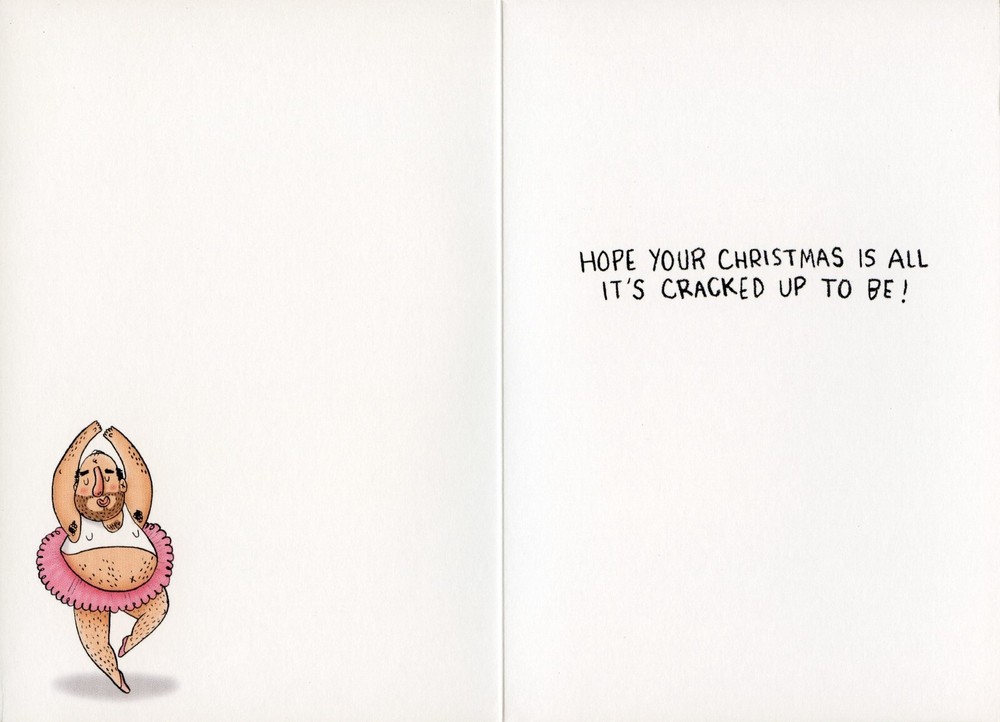 HOPE YOUR CHRISTMAS IS ALL
IT'S CRACKED UP TO BE!